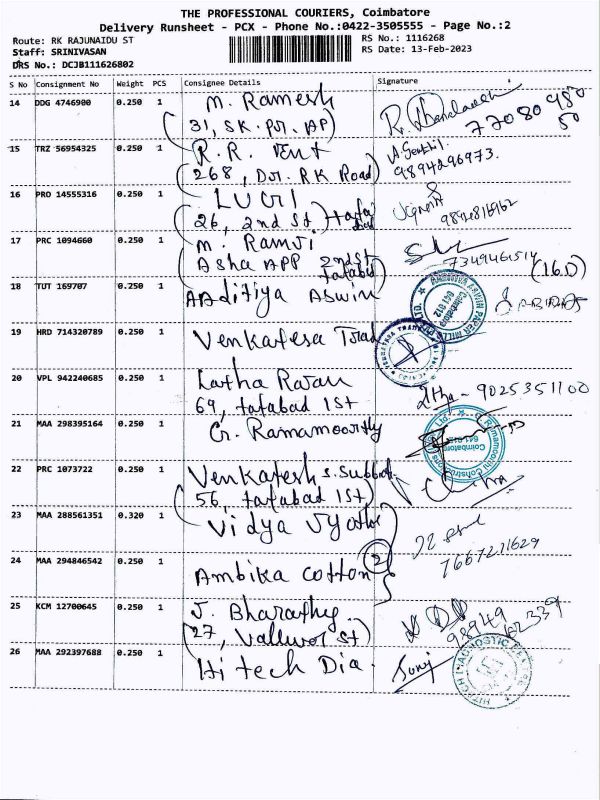 THE PROFESSIONAL COURIERS, Coimbatore
Delivery Runsheet - PCX - Phone No.:0422-3505555 - Page No.:2
Route: RK RAJUNAIDU ST
RS No.: 1116268
Staff: SRINIVASAN
RS Date: 13-Feb-2023
DRS No.: DCJB111626802
S No Consignment No Weight PCS Consignee Details Signature
14 DDG 4746900 0.250 1 M. Ramesh
31, SK. 
7708098050
15 TRZ 56954325 0.250 1 R.R. Vent
268, Dor. RK Road
9894296973.
16 PRO 14555316 0.250 1 LUCRI
26, 2nd St
17 PRC 1094660 0.250 1 M. Ramji
Asha APP 2nd St
tatabad
(16.D)
18 TUT 169707 0.250 1 AAditiya Aswin
ASWIN PAPER MILLS
641 012
Coimbatore
19 HRD 714320789 0.250 1 Venkatesa Trad
20 VPL 942240685 0.250 1 Latha Rajan
69, tatabad 1St
9025351100
21 MAA 298395164 0.250 1 G. Ramamoorthy
Ramamoorthi Constructions
Coimbatore
22 PRC 1073722 0.250 1 Venkatesh S. Subb
56, tatabad 1St
23 MAA 288561351 0.320 1 Vidya Vyatha
7667211629
24 MAA 294846542 0.250 1 Ambika Cotton
2
25 KCM 12700645 0.250 1 J. Bharathy
27, Valluvar St
98949 62339
26 MAA 292397688 0.250 1 Hi tech Dia.
HITECH DIAGNOSTIC CENTRE